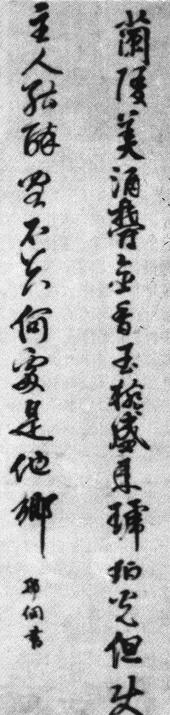 蘭陵美酒鬱金香玉椀盛来琥珀光但使
主人能醉客不知何處是他鄉 邢侗書